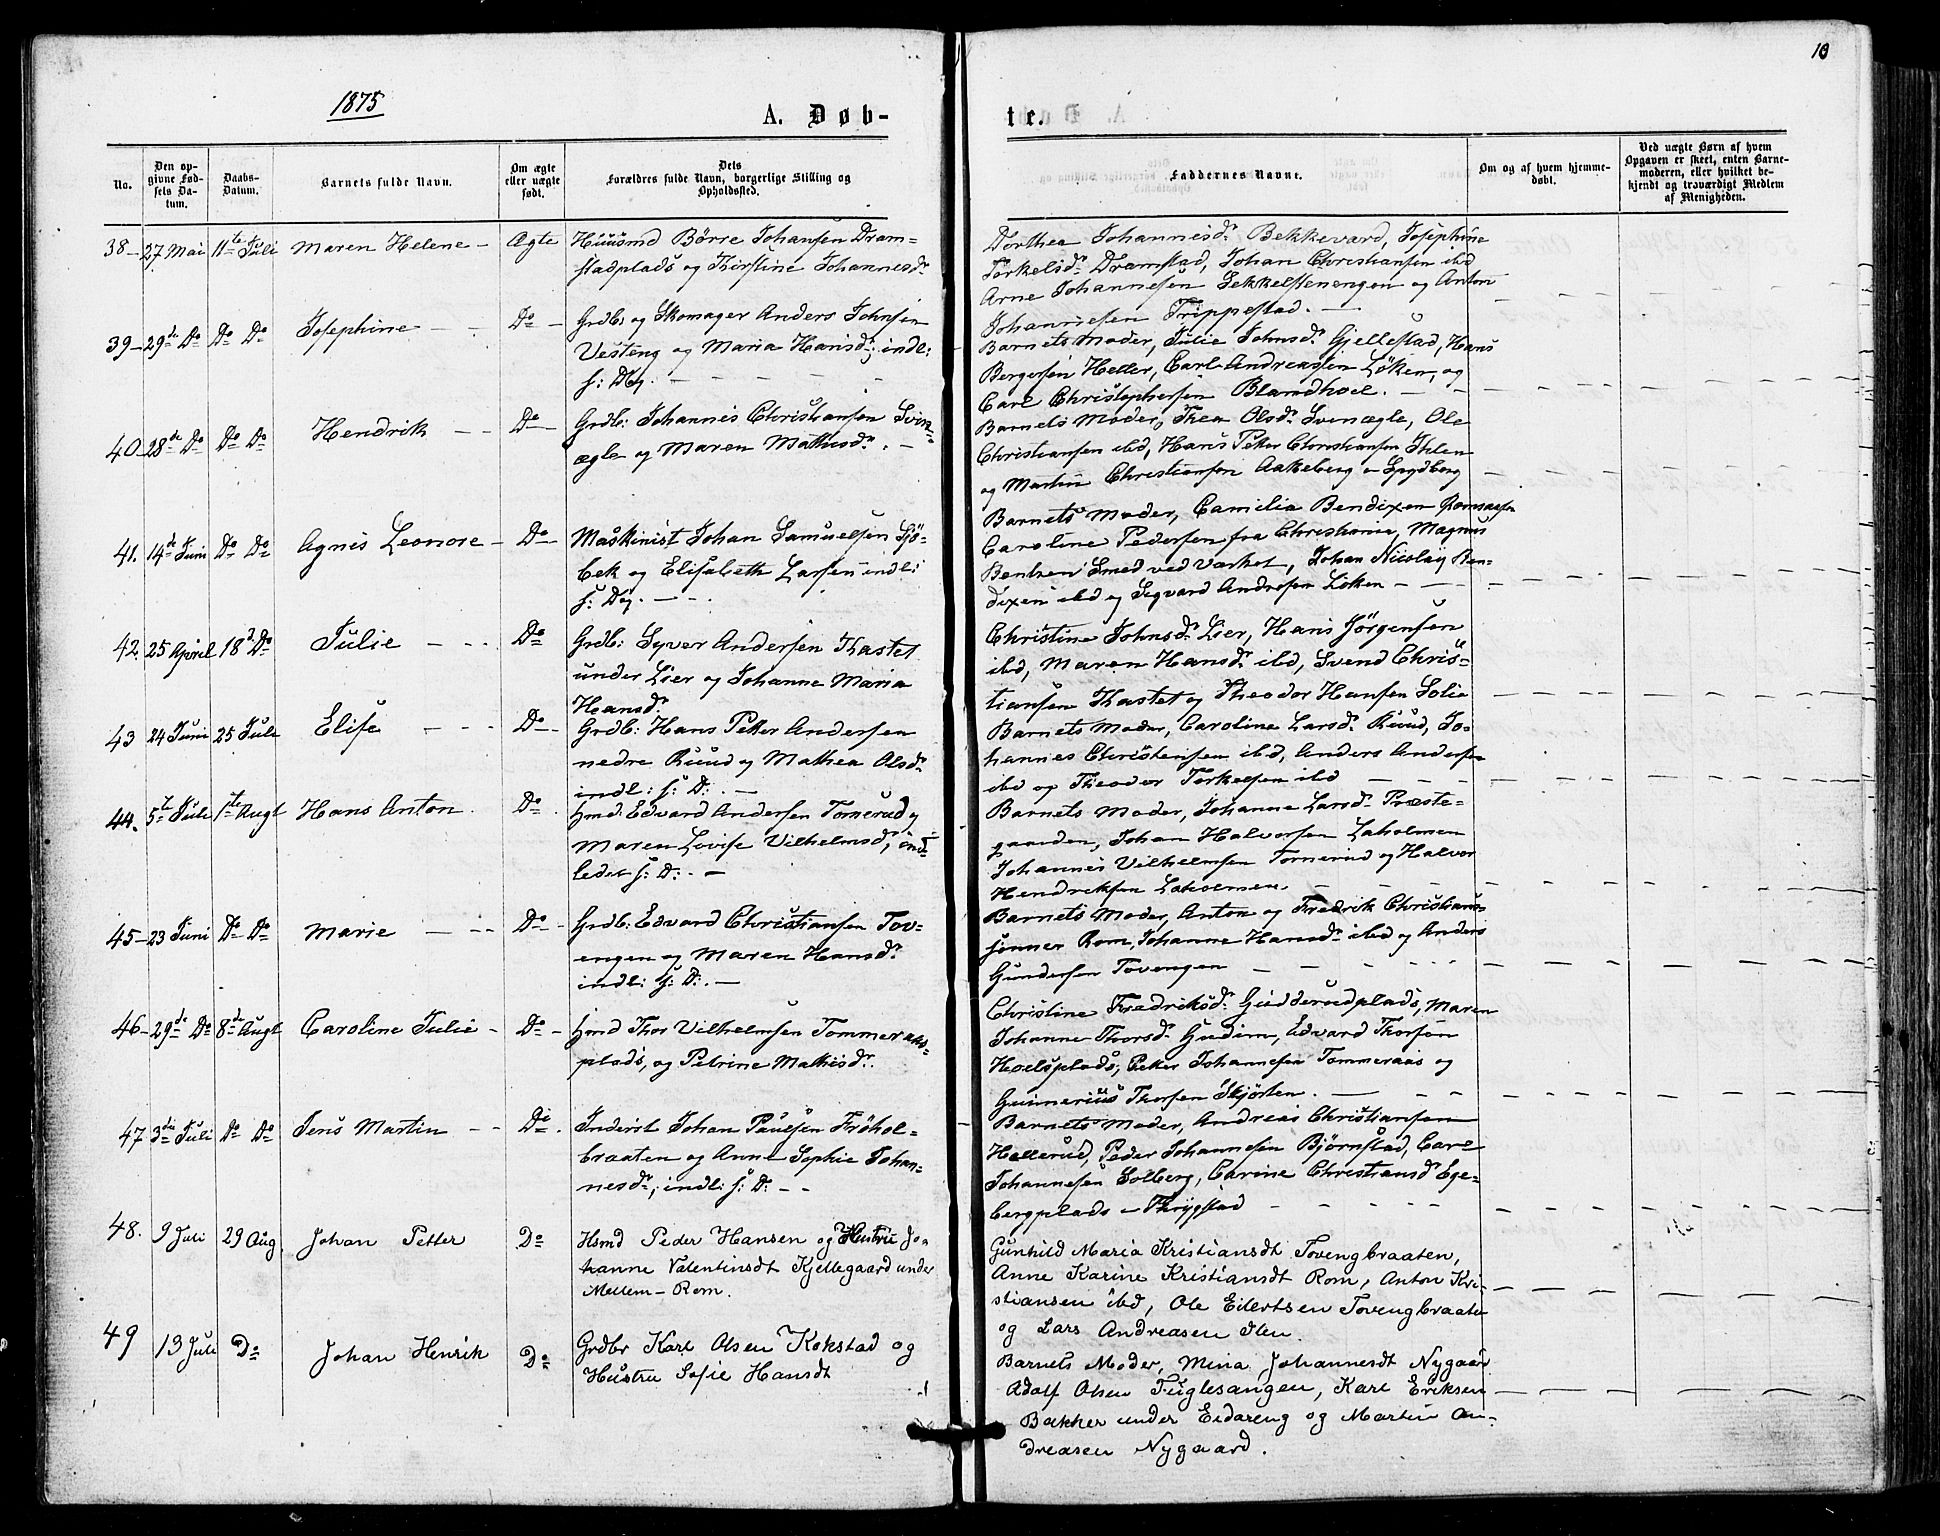 10
1875
A. Døb-
te.
No.
Den op-
givne Fød-
sels Da-
tum.
Daabs-
Datum.
Barnets fulde Navn.
Om ægte
eller uægte
født.
Dets
Forældres fulde Navn, borgerlige Stilling og
Opholdssted.
Faddernes Navne.
Om og af hvem hjemme-
døbt.
Ved uægte Børn af hvem
Opgaven er skeet, enten Barne-
moderen, eller hvilket be-
kjendt og troværdigt Medlem
af Menigheden.
38 - 27 Mai 11te Juli Maren Helene - Ægte
Huusmd Börre Johansen Dram=
stadplads og Thirstine Johannesdr
Dorthea Johannisdr Bekkevard, Josephine
Torkelsdr Dramstad, Johan Christiansen ibd
Arne Johannesen Sekkelstenengen og Anton
Johannesen Trippestad. -
39 - 29de Do Do Do Josephine - - Do -
Grdb: og Skomager Anders Johnsen
Vesteng og Maria Hansdr; indl:
s: Dg. - - - -
Barnets Moder, Julie Johnsdr Gjellestad, Hans
Bergersen Heller, Carl Andreassen Löken, og
Carl Christophersen Blandhoel. - -
40 28de Do Do Do Hendrik - - Do -
Grdb: Johannis Christiansen Svin=
ægle og Maren Mathisdr. -
Barnets Moder, Thea Olsdr Svenægle, Ole
Christiansen ibd, Hans Peter Christiansen Ihlen
og Martin Christiansen Aakeberg - Spydberg
41. 14de Juni Do Do Agnis Leonore - Do -
Maskinist Johan Samuelsen Sjö=
bek og Elisabeth Larsen indl:
s: Dg. - - .
Barnets Moder, Camilia Bendixen
Caroline Pedersen fra Christiania, Magnus
Bentzen Smed ved Værket, Johan Nicolay Ben=
dixen ibd og Segvard Andresen Löken - - -
42. 25 April 18d. Do Julie - - . Do
Grdb: Syver Andersen Thastet
under Lier og Johanne Maria
Hansdr
Christine Johnsdr Lier, Hans Jörgensen
ibd, Maren Hansdr ibd, Svend Chris=
tiansen Thastet og Theodor Hansen Solie
43 24 Juni 25 Juli Elise - - - Do -
Grdb: Hans Petter Andersen
nedre Ruud og Mathea Olsdr
indl: s: D: . -
Barnets Moder, Caroline Larsdr Ruud, Jo=
hannes Christensen ibd, Anders Andersen
ibd og Theodor Torkelsen ibd - - - -
44. 5te Juli 1ste Augt Hans Anton . Do .
Hmd: Edvard Andersen Tornerud og
Maren Lovise Vilhelmsdr, ind=
ledet s: D: . -
Barnets Moder, Johanne Larsdr Præste=
gaarden, Johan Halvorsen Laholmen
Johannes Vilhelmsen Tornerud og Halvor
Hendriksen Laholmen.
45 - 23 Juni Do Do Marie - - - Do -
Grdb: Edvard Christiansen Tov=
engen og Maren Hansdr
indl: s: D: . -
Barnets Moder, Anton og Fredrik Christians=
sönner Rom, Johanne Hansdr ibd og Anders
Gundersen Tovengen - - - -
46 - 29de Do 8de Augt Caroline Julie - Do -
Hmd Thor Vilhelmsen Tommeraas=
plads, og Petrine Mathisdr.
Christine Fredriksdr Gudderudplads, Maren
Johanne Thorsdr Gudim, Edvard Thorsen
Hoelsplads, Peter Johannesen Tommeraas og
Gunnerius Thorsen Skjörten . - -
47 3die Juli Do Do Jens Martin - - Do .
Inderst Johan Paulsen Fröhol=
braaten og Anne Sophie Johan=
nesdr, indl: s: D: - -
Barnets Moder, Andreas Christiansen
Hellerud, Peder Johannesen Björnstad, Carl
Johannesen Solberg, Carine Christiansdr Ege=
bergplads - Thrygstad - - - -
48. 9 Juli 29 Aug. Johan Petter Do
Hsmd Peder Hansen og Hustru Jo-
hanne Valentinsdt Kjellegaard under
Mellem-Rom.
Gunhild Maria Kristiansdt Tovengbraaten,
Anne Karine Kristiansdt Rom, Anton Kri-
stiansen ibd, Ole Eilertsen Tovengbraaten
og Lars Andreasen Ilen.
49 13 Juli Do Johan Henrik Do
Grdbr Karl Olsen Kokstad og
Hustru Sofie Hansdt
Barnets Moder, Mina Johannesdt Nygaard
Adolf Olsen Fuglesangen, Karl Eriksen
Bakker under Eidareng og Martin An-
dreasen Nygaard.